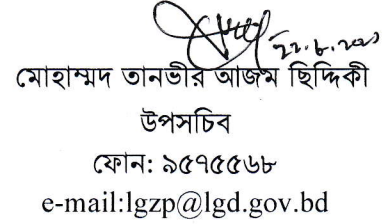 মোহাম্মদ তানভীর আজম ছিদ্দিকী
উপসচিব
ফোন: ৯৫৭৫৫৬৮
e-mail:lgzp@lgd.gov.bd